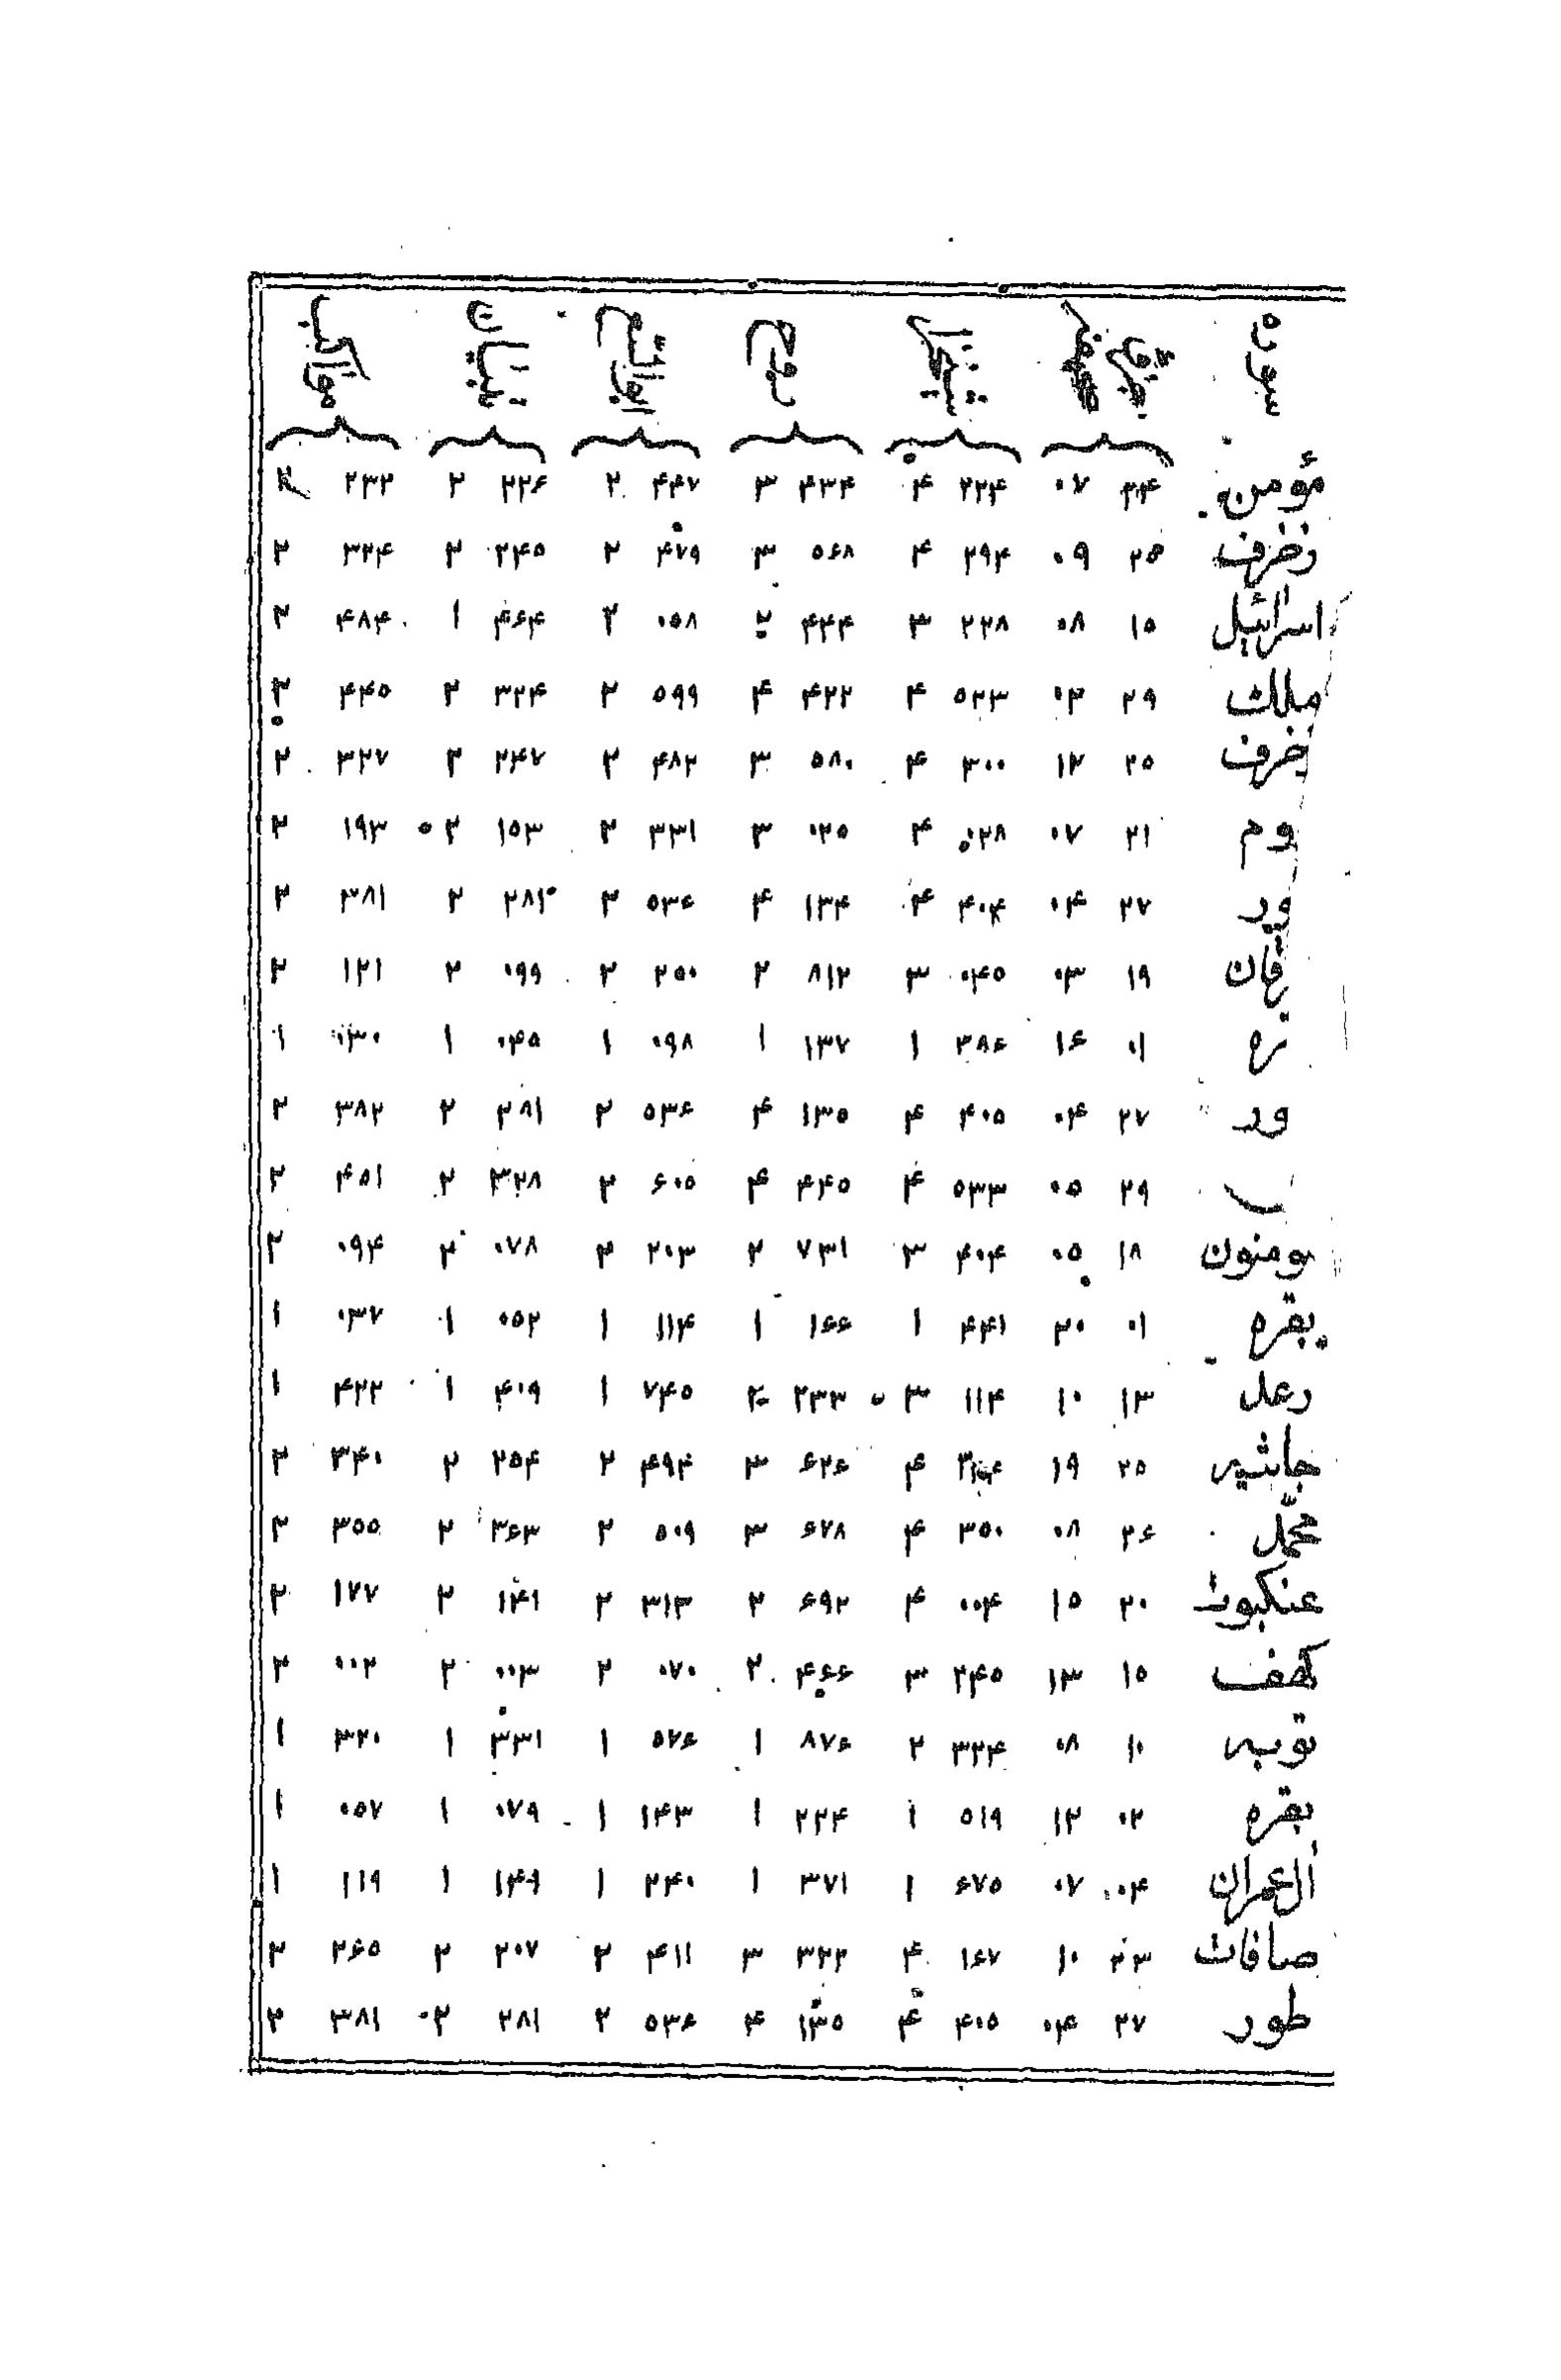 سوره
مؤمن ۲۴ ۰۷ ۲۲۴ ۴ ۴۳۴ ۳ ۴۴۷ ۲ ۲۲۶ ۲ ۲۳۲ ۲
زخرف ۲۵ ۰۹ ۲۹۴ ۴ ۵۶۸ ۳ ۴۷۹ ۲ ۲۴۵ ۲ ۳۲۴ ۲
اسرائیل ۱۵ ۰۸ ۲۲۸ ۳ ۴۴۴ ۲ ۰۵۸ ۲ ۴۶۴ ۱ ۴۸۴ ۲
ملك ۲۹ ۰۲ ۵۲۳ ۴ ۴۲۲ ۴ ۵۹۹ ۲ ۳۲۴ ۲ ۴۴۵ ۲
خرف ۲۵ ۱۲ ۳۰۰ ۴ ۵۸۰ ۳ ۴۸۲ ۲ ۲۴۷ ۲ ۳۲۷ ۲
وم ۲۱ ۰۷ ۰۲۸ ۴ ۰۲۵ ۳ ۳۳۱ ۲ ۱۵۳ ۲ ۱۹۳ ۲
ور ۲۷ ۰۴ ۴۰۴ ۴ ۱۳۴ ۴ ۵۳۶ ۲ ۲۸۱ ۲ ۳۸۱ ۲
رقان ۱۹ ۰۳ ۰۴۵ ۳ ۸۱۲ ۲ ۲۵۰ ۲ ۰۹۹ ۲ ۱۲۱ ۲
ره ۰۱ ۱۶ ۳۸۶ ۱ ۱۳۷ ۱ ۰۹۸ ۱ ۰۴۵ ۱ ۰۳۰ ۱
ور ۲۷ ۰۴ ۴۰۵ ۴ ۱۳۵ ۴ ۵۳۶ ۲ ۲۸۱ ۲ ۳۸۲ ۲
۲۹ ۰۵ ۵۳۳ ۴ ۴۴۵ ۴ ۶۰۵ ۲ ۳۲۸ ۲ ۴۵۱ ۲
ومنون ۱۸ ۰۵ ۴۰۴ ۳ ۷۳۱ ۲ ۲۰۳ ۲ ۰۷۸ ۲ ۰۹۴ ۲
بقره ۰۱ ۲۰ ۴۴۱ ۱ ۱۶۶ ۱ ۱۱۴ ۱ ۰۵۲ ۱ ۰۳۷ ۱
رعد ۱۳ ۱۰ ۱۱۴ ۳ ۲۳۳ ۲ ۷۴۵ ۱ ۴۰۹ ۱ ۴۲۲ ۱
جاثیه ۲۵ ۱۹ ۴ ۶۲۶ ۳ ۴۹۴ ۲ ۲۵۴ ۲ ۳۴۰ ۲
محمّد ۲۶ ۰۸ ۳۵۰ ۴ ۶۷۸ ۳ ۵۰۹ ۲ ۳۶۳ ۲ ۳۵۵ ۲
عنکبوت ۲۰ ۱۵ ۰۰۴ ۴ ۶۹۲ ۲ ۳۱۳ ۲ ۱۴۱ ۲ ۱۷۷ ۲
کهف ۱۵ ۱۳ ۲۴۵ ۳ ۴۶۶ ۲ ۰۷۰ ۲ ۰۰۳ ۲ ۰۰۲ ۲
توبه ۱۰ ۰۸ ۳۲۴ ۲ ۸۷۶ ۱ ۵۷۶ ۱ ۳۳۱ ۱ ۳۲۰ ۱
بقره ۰۲ ۱۲ ۵۱۹ ۱ ۲۲۴ ۱ ۱۴۳ ۱ ۰۷۹ ۱ ۰۵۷ ۱
آل‌عمران ۰۴ ۰۷ ۶۷۵ ۱ ۳۷۱ ۱ ۲۴۰ ۱ ۱۴۹ ۱ ۱۱۹ ۱
صافات ۲۳ ۱۰ ۱۶۷ ۴ ۳۲۲ ۳ ۴۱۱ ۲ ۲۰۷ ۲ ۲۶۵ ۲
طور ۲۷ ۰۴ ۴۰۵ ۴ ۱۳۵ ۴ ۵۳۶ ۲ ۲۸۱ ۲ ۳۸۱ ۲